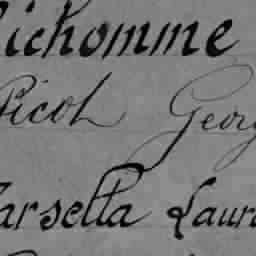 Richomme
Picol Georg
Marsella Laur